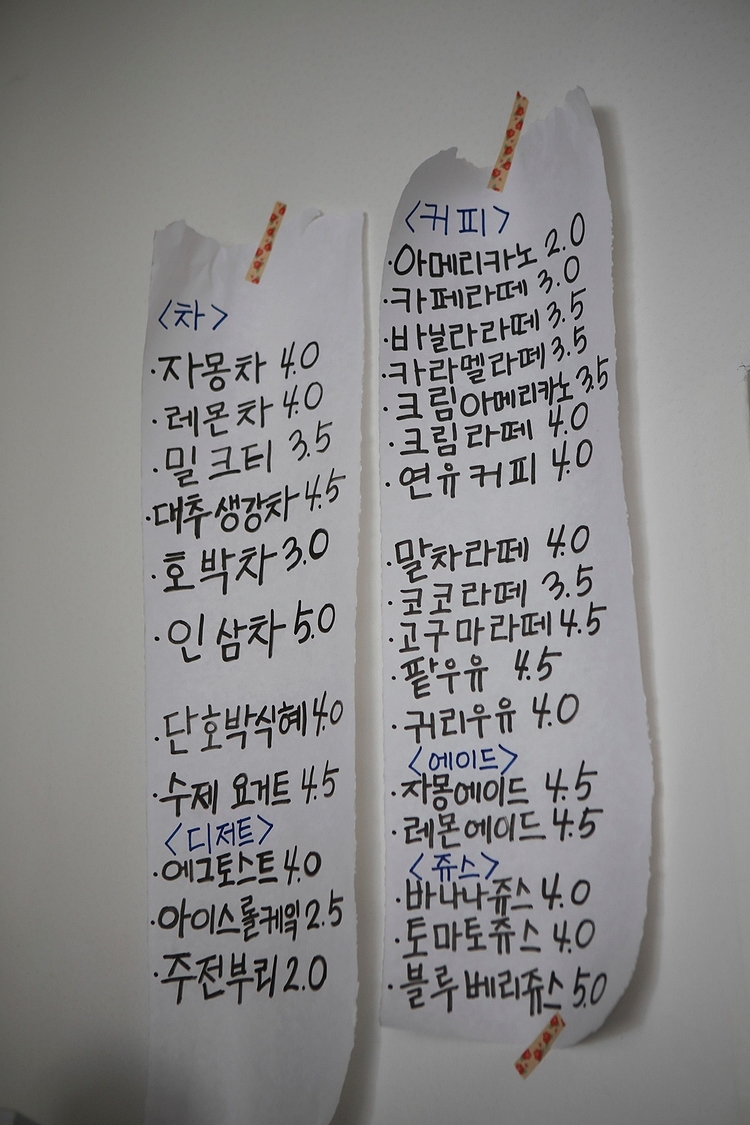 <차>
·자몽차 4.0
·레몬차 4.0
·밀크티 3.5
·대추생강차 4.5
·호박차 3.0
·인삼차 5.0
·단호박식혜 4.0
·수제 요거트 4.5
<디저트>
·에그토스트 4.0
·아이스롤케잌 2.5
·주전부리 2.0
<커피>
·아메리카노 2.0
·카페라떼 3.0
·바닐라라떼 3.5
·카라멜라떼 3.5
·크림아메리카노 3.5
·크림라떼 4.0
·연유커피 4.0
·말차라떼 4.0
·코코라떼 3.5
·고구마라떼 4.5
·팥우유 4.5
·귀리우유 4.0
<에이드>
·자몽에이드 4.5
·레몬에이드 4.5
<쥬스>
·바나나쥬스 4.0
·토마토쥬스 4.0
·블루베리쥬스 5.0